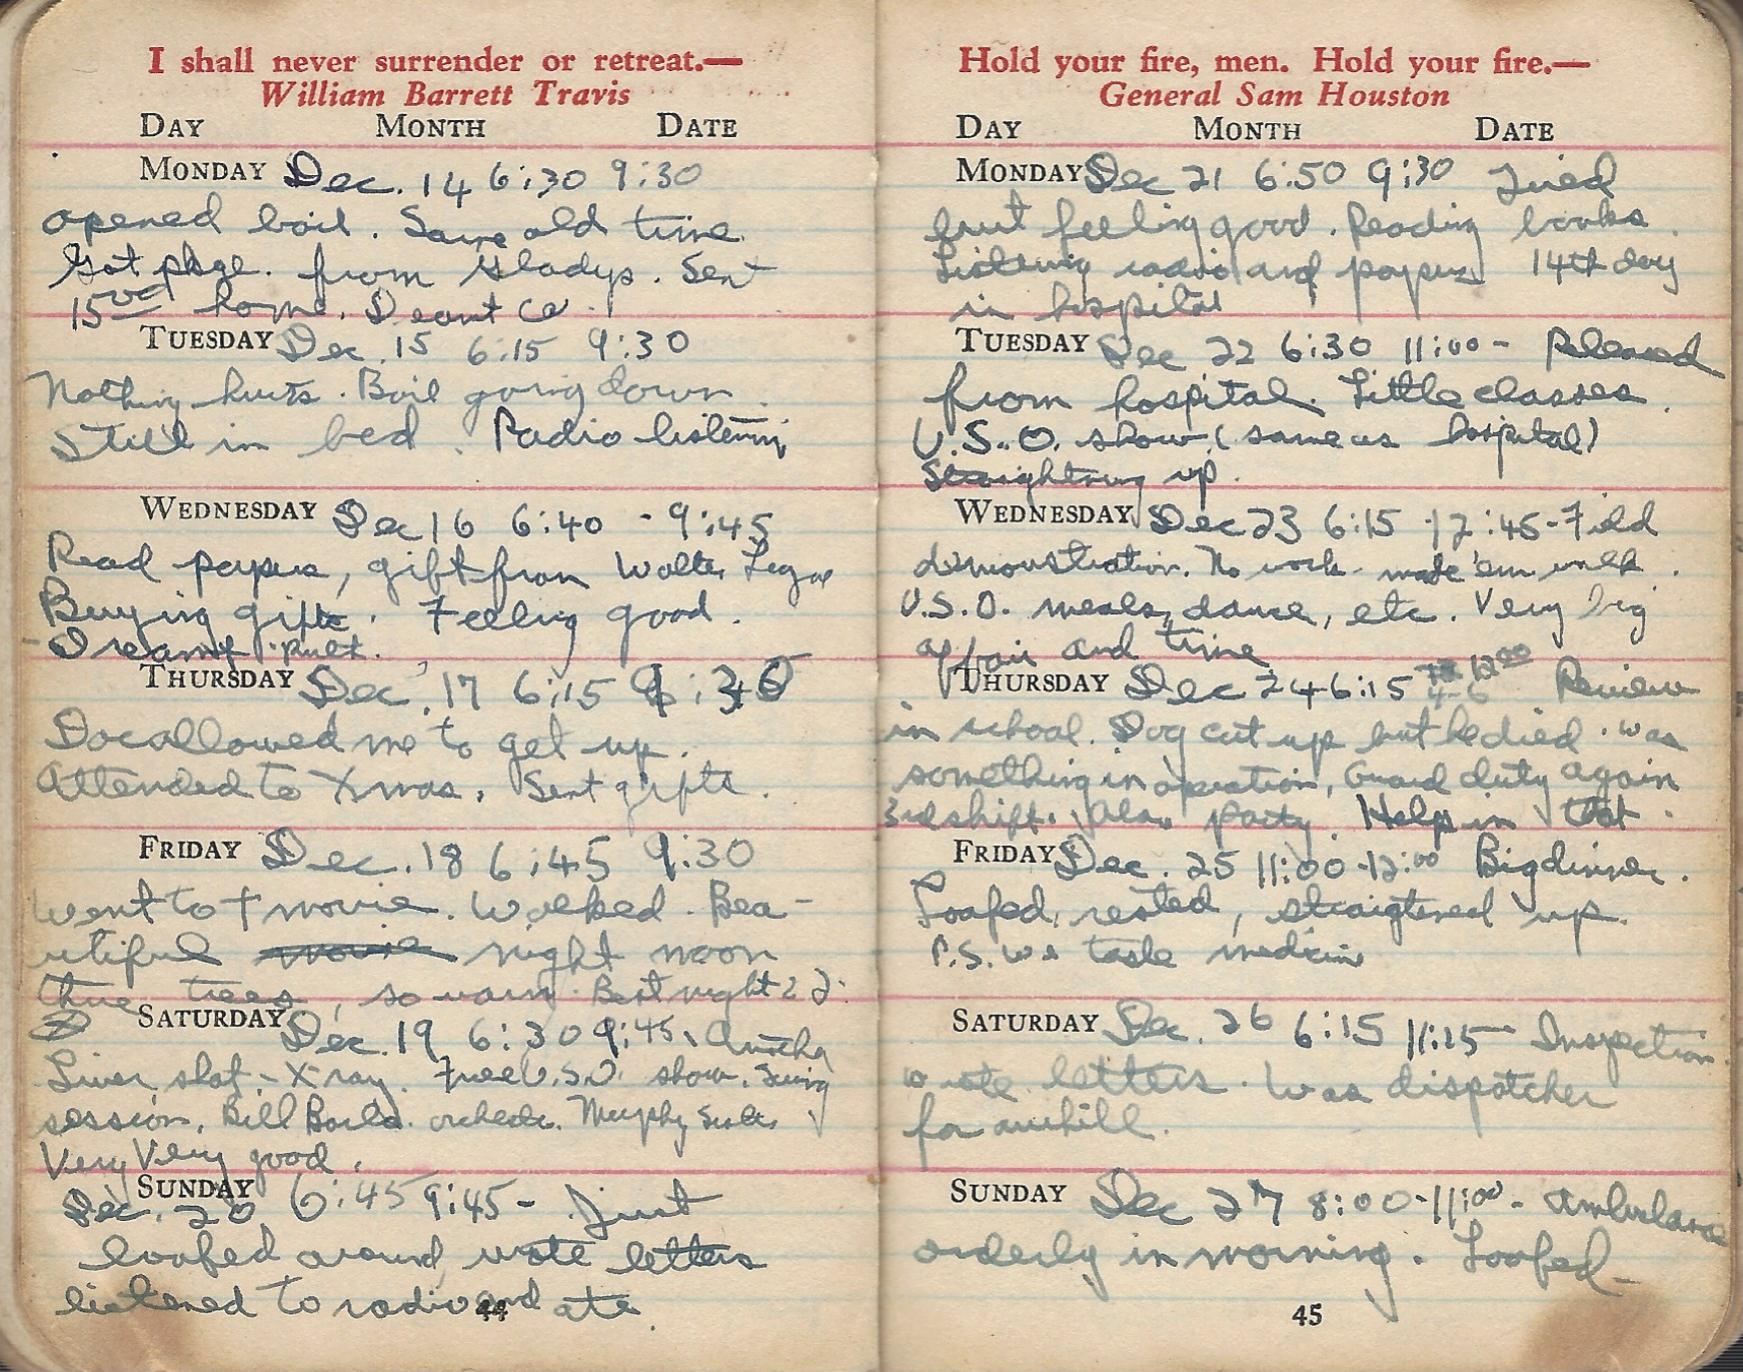 I shall never surrender or retreat.—
William Barrett Travis
DAY MONTH DATE
MONDAY Dec. 14 6:30 9:30
opened boil. Same old time.
Got pkge. from Gladys. Sent
15 00 home.
TUESDAY Dec. 15 6:15 9:30
Nothing hurts. Boil going down.
Still in bed. Radio listening
WEDNESDAY Dec 16 6:40 - 9:45
Read papers, gift from Walter
Buying gifts. Feeling good.
- Dreamt
THURSDAY Dec. 17 6:15
Doc allowed me to get up.
Attended to Xmas. Sent gifts.
FRIDAY Dec. 18 6:45 9:30
Went to movie. Walked. Bea-
utiful movie night moon
thru trees, so warm. Best night
SATURDAY Dec. 19 6:30 9:45. Another
Liver shot - X-ray. Free U.S.O. show. Swing
session, Bill orchestra. Murphy Sisters
Very Very good.
SUNDAY
Dec. 20 6:45 9:45 - Just
loafed around wrote letters
listened to radio and ate.
44
Hold your fire, men. Hold your fire.—
General Sam Houston
DAY MONTH DATE
MONDAY Dec 21 6:50 9:30 Tired
but feeling good. Reading books.
Listening radio and papers 14th day
in hospital
TUESDAY Dec 22 6:30 11:00 - Released
from hospital. Little classes.
U.S.O. show (same as hospital)
Straightning up.
WEDNESDAY Dec 23 6:15 - 12:45 - Field
demonstration. No work - made 'em walk.
U.S.O. meals, dance, etc. Very big
affair and time
THURSDAY Dec 24 6:15 12 00 Review
in school. Dog cut up but he died. was
something in operation, Guard duty again
3rd shift. Also party. Help in that.
FRIDAY Dec. 25 11:00 - 12:00 Big dinner.
Loafed, rested, straigtened up.
P.S. we taste medicine
SATURDAY Dec. 26 6:15 11:15 - Inspection.
wrote letters. Was dispatcher
for
SUNDAY Dec 27 8:00 - 11:00 - Ambulance
orderly in morning. Loafed -
45